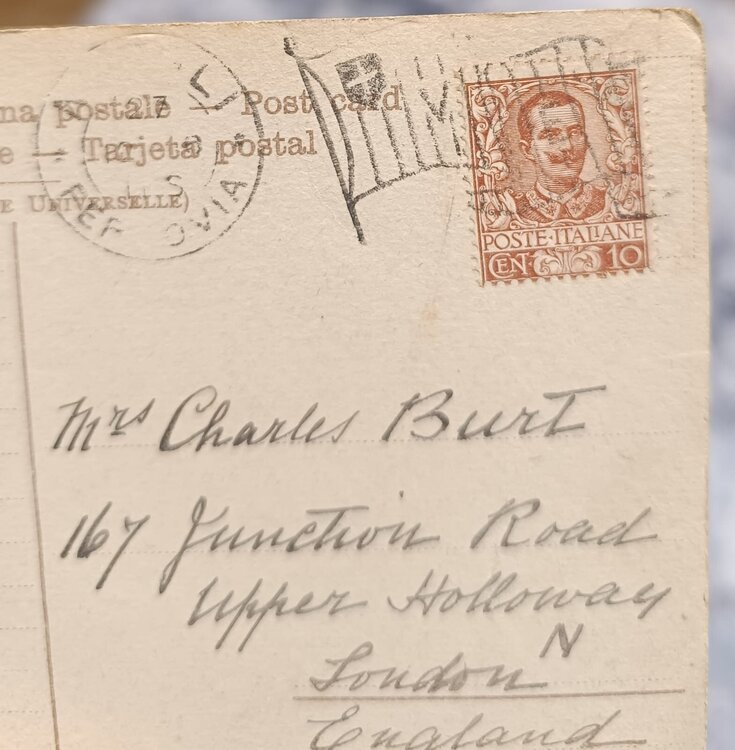 na postale — Post card
e — Tarjeta postal
E UNIVERSELLE)
23
S
POSTE·ITALIANE
CEN· 10
Mrs Charles Burt
167 Junction Road
Upper Holloway
London N
England